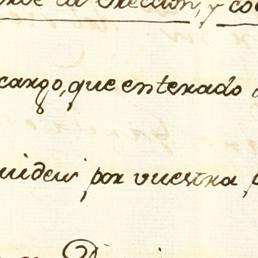 la Direccion, y co
cargo, que enterado
uiden por vuestra